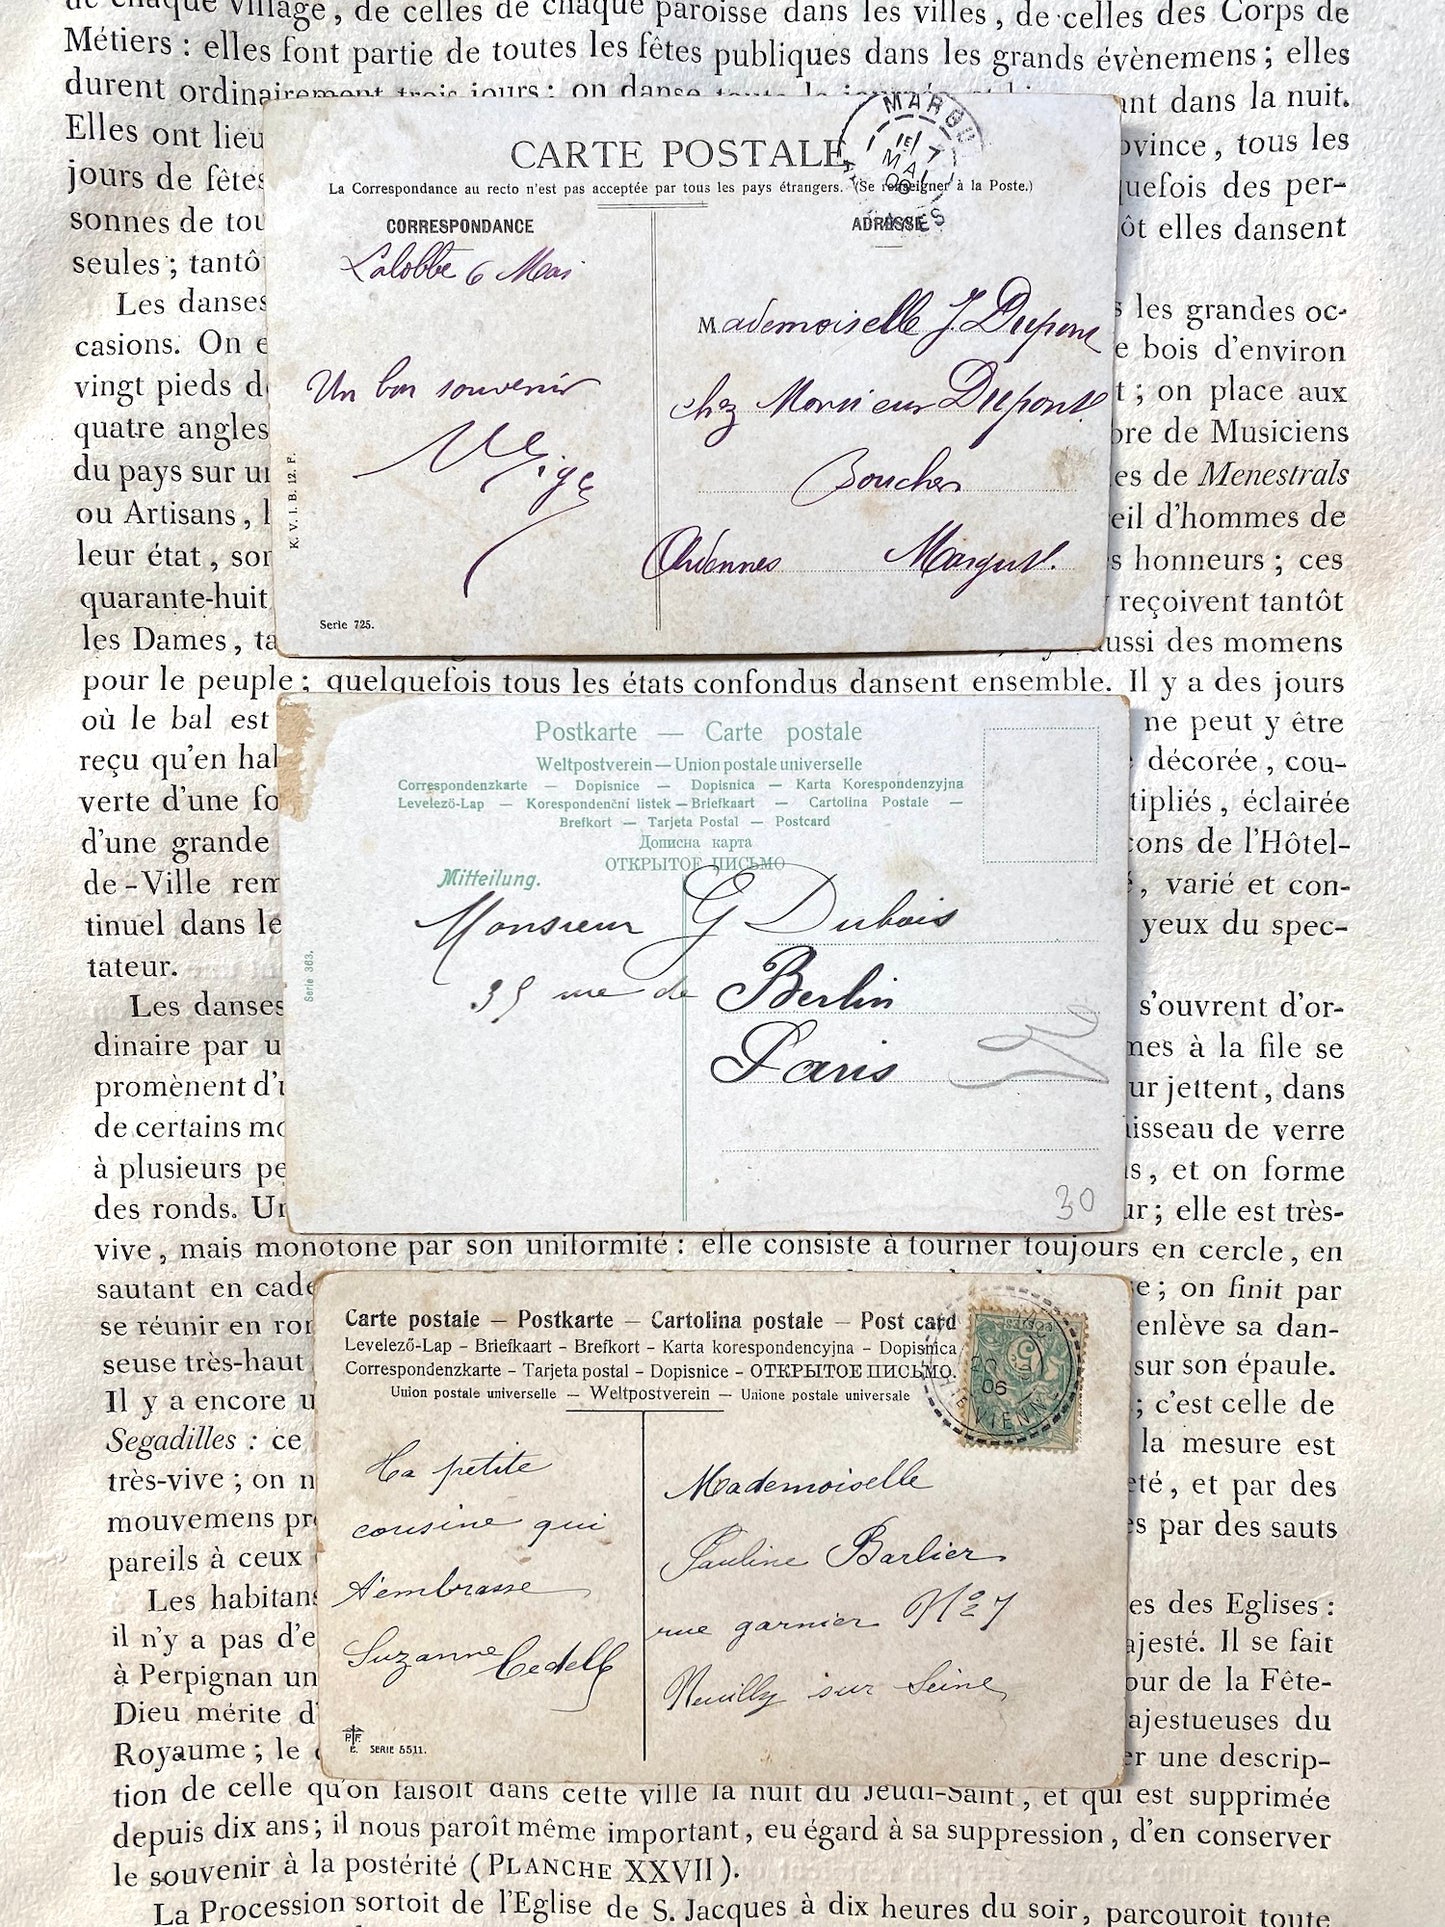 de chaque village, de celles de chaque paroisse dans les villes, de celles des Corps de
Métiers : elles font partie de toutes les fêtes publiques dans les grands évènemens ; elles
durent ordinairement trois jours ; on danse toute la ant dans la nuit.
Elles ont lieu ovince, tous les
jours de fêtes quefois des per-
sonnes de tou ôt elles dansent
seules ; tantô
Les danses s les grandes oc-
casions. On e e bois d'environ
vingt pieds d t ; on place aux
quatre angles bre de Musiciens
du pays sur un es de Menestrals
ou Artisans, l eil d'hommes de
leur état, son s honneurs ; ces
quarante-huit y reçoivent tantôt
les Dames, ta aussi des momens
pour le peuple ; quelquefois tous les états confondus dansent ensemble. Il y a des jours
où le bal est ne peut y être
reçu qu'en hal décorée, cou-
verte d'une fo tipliés, éclairée
d'une grande cons de l'Hôtel-
de-Ville rem é, varié et con-
tinuel dans le yeux du spec-
tateur.
Les danses s'ouvrent d'or-
dinaire par u mes à la file se
promènent d'u ur jettent, dans
de certains mo aisseau de verre
à plusieurs pe s, et on forme
des ronds. Un ur ; elle est très-
vive, mais monotone par son uniformité : elle consiste à tourner toujours en cercle, en
sautant en cade e ; on finit par
se réunir en ron enlève sa dan-
seuse très-haut sur son épaule.
Il y a encore u ; c'est celle de
Segadilles : ce la mesure est
très-vive ; on n eté, et par des
mouvemens pr s par des sauts
pareils à ceux
Les habitans es des Eglises :
il n'y a pas d'e ajesté. Il se fait
à Perpignan un our de la Fête-
Dieu mérite d' ajestueuses du
Royaume ; le er une descrip-
tion de celle qu'on faisoit dans cette ville la nuit du Jeudi-Saint, et qui est supprimée
depuis dix ans ; il nous paroît même important, eu égard à sa suppression, d'en conserver
le souvenir à la postérité (PLANCHE XXVII).
La Procession sortoit de l'Eglise de S. Jacques à dix heures du soir, parcouroit toute
CARTE POSTALE
La Correspondance au recto n'est pas acceptée par tous les pays étrangers. (Se renseigner à la Poste.)
CORRESPONDANCE
ADRESSE
MARGU
1E/ 7
MAI
06
Lalobbe 6 Mai
Un bon souvenir
Mademoiselle J. Dupont
chez Monsieur Dupont
Boucher
Ardennes Margut.
K. V. i. B. 12. F.
Serie 725.
Postkarte — Carte postale
Weltpostverein — Union postale universelle
Correspondenzkarte — Dopisnice — Dopisnica — Karta Korespondenzyjna
Levelező-Lap — Korespondenční listek — Briefkaart — Cartolina Postale —
Brefkort — Tarjeta Postal — Postcard
Дописна карта
ОТКРЫТОЕ ПИСЬМО
Mitteilung.
Monsieur G Dubois
35 rue de Berlin
Paris
Serie 363.
30
Carte postale – Postkarte – Cartolina postale – Post card
Levelező-Lap – Briefkaart – Brefkort – Karta korespondencyjna – Dopisnica
Correspondenzkarte – Tarjeta postal – Dopisnice – ОТКРЫТОЕ ПИСЬМО.
Union postale universelle — Weltpostverein — Unione postale universale
POSTES
5
20
06
VIENNE
Ta petite
cousine qui
t'embrasse
Suzanne
Mademoiselle
Pauline Barlier
rue garnier No 27
Neuilly sur Seine
P.F.
E. SERIE 5511.